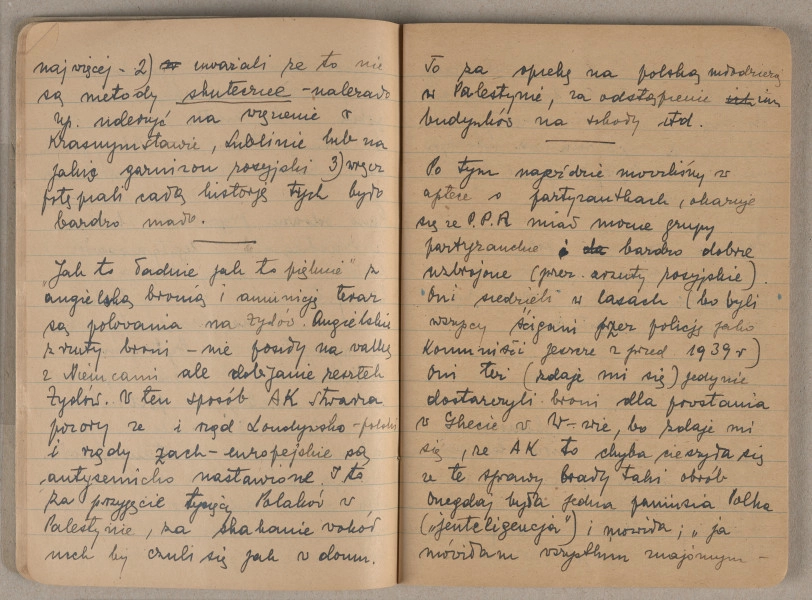 najwięcej - 2) uważali że to nie
są metody skuteczne - należało
np. uderzyć na więzienie w
Krasnymstawie, Lublinie lub na
jakiś garnizon rosyjski 3) wręcz
potępiali całą historję tych było
bardzo mało.
"Jak to ładnie jak to pięknie" z
angielską bronią i amunicją teraz
są polowania na Żydów. Angielskie
zrzuty broni - nie poszły na walkę
z Niemcami ale dobijanie resztek
Żydów. W ten sposób AK stwarza
pozory że i rząd Londyńsko-polski
i rządy zach-europejskie są
antysemicko nastawione. I to
za przyjęcie tysięcy Polaków w
Palestynie, za skakanie wokół
nich by czuli się jak w domu.
To za opiekę na polską młodzieżą
w Palestynie, za odstąpienie im
budynków na szkoły itd.
Po tym napadzie mówiliśmy w
aptece o partyzantkach, okazuje
się że P.P.R miał mocne grupy
partyzanckie i bardzo dobrze
uzbrojone (przez zrzuty rosyjskie).
Oni siedzieli w lasach (bo byli
wszyscy ścigani przez policję jako
komuniści jeszcze z przed 1939 r)
Oni też (zdaje mi się) jedynie
dostarczyli broni dla powstania
w Ghecie w W-wie, bo zdaje mi
się, że AK to chyba cieszyła się
że te sprawy brały taki obrót
Onegdaj była jedna paniusia Polka
("jenteligencja") i mówiła; "ja
mówiłam wszystkim znajomym -